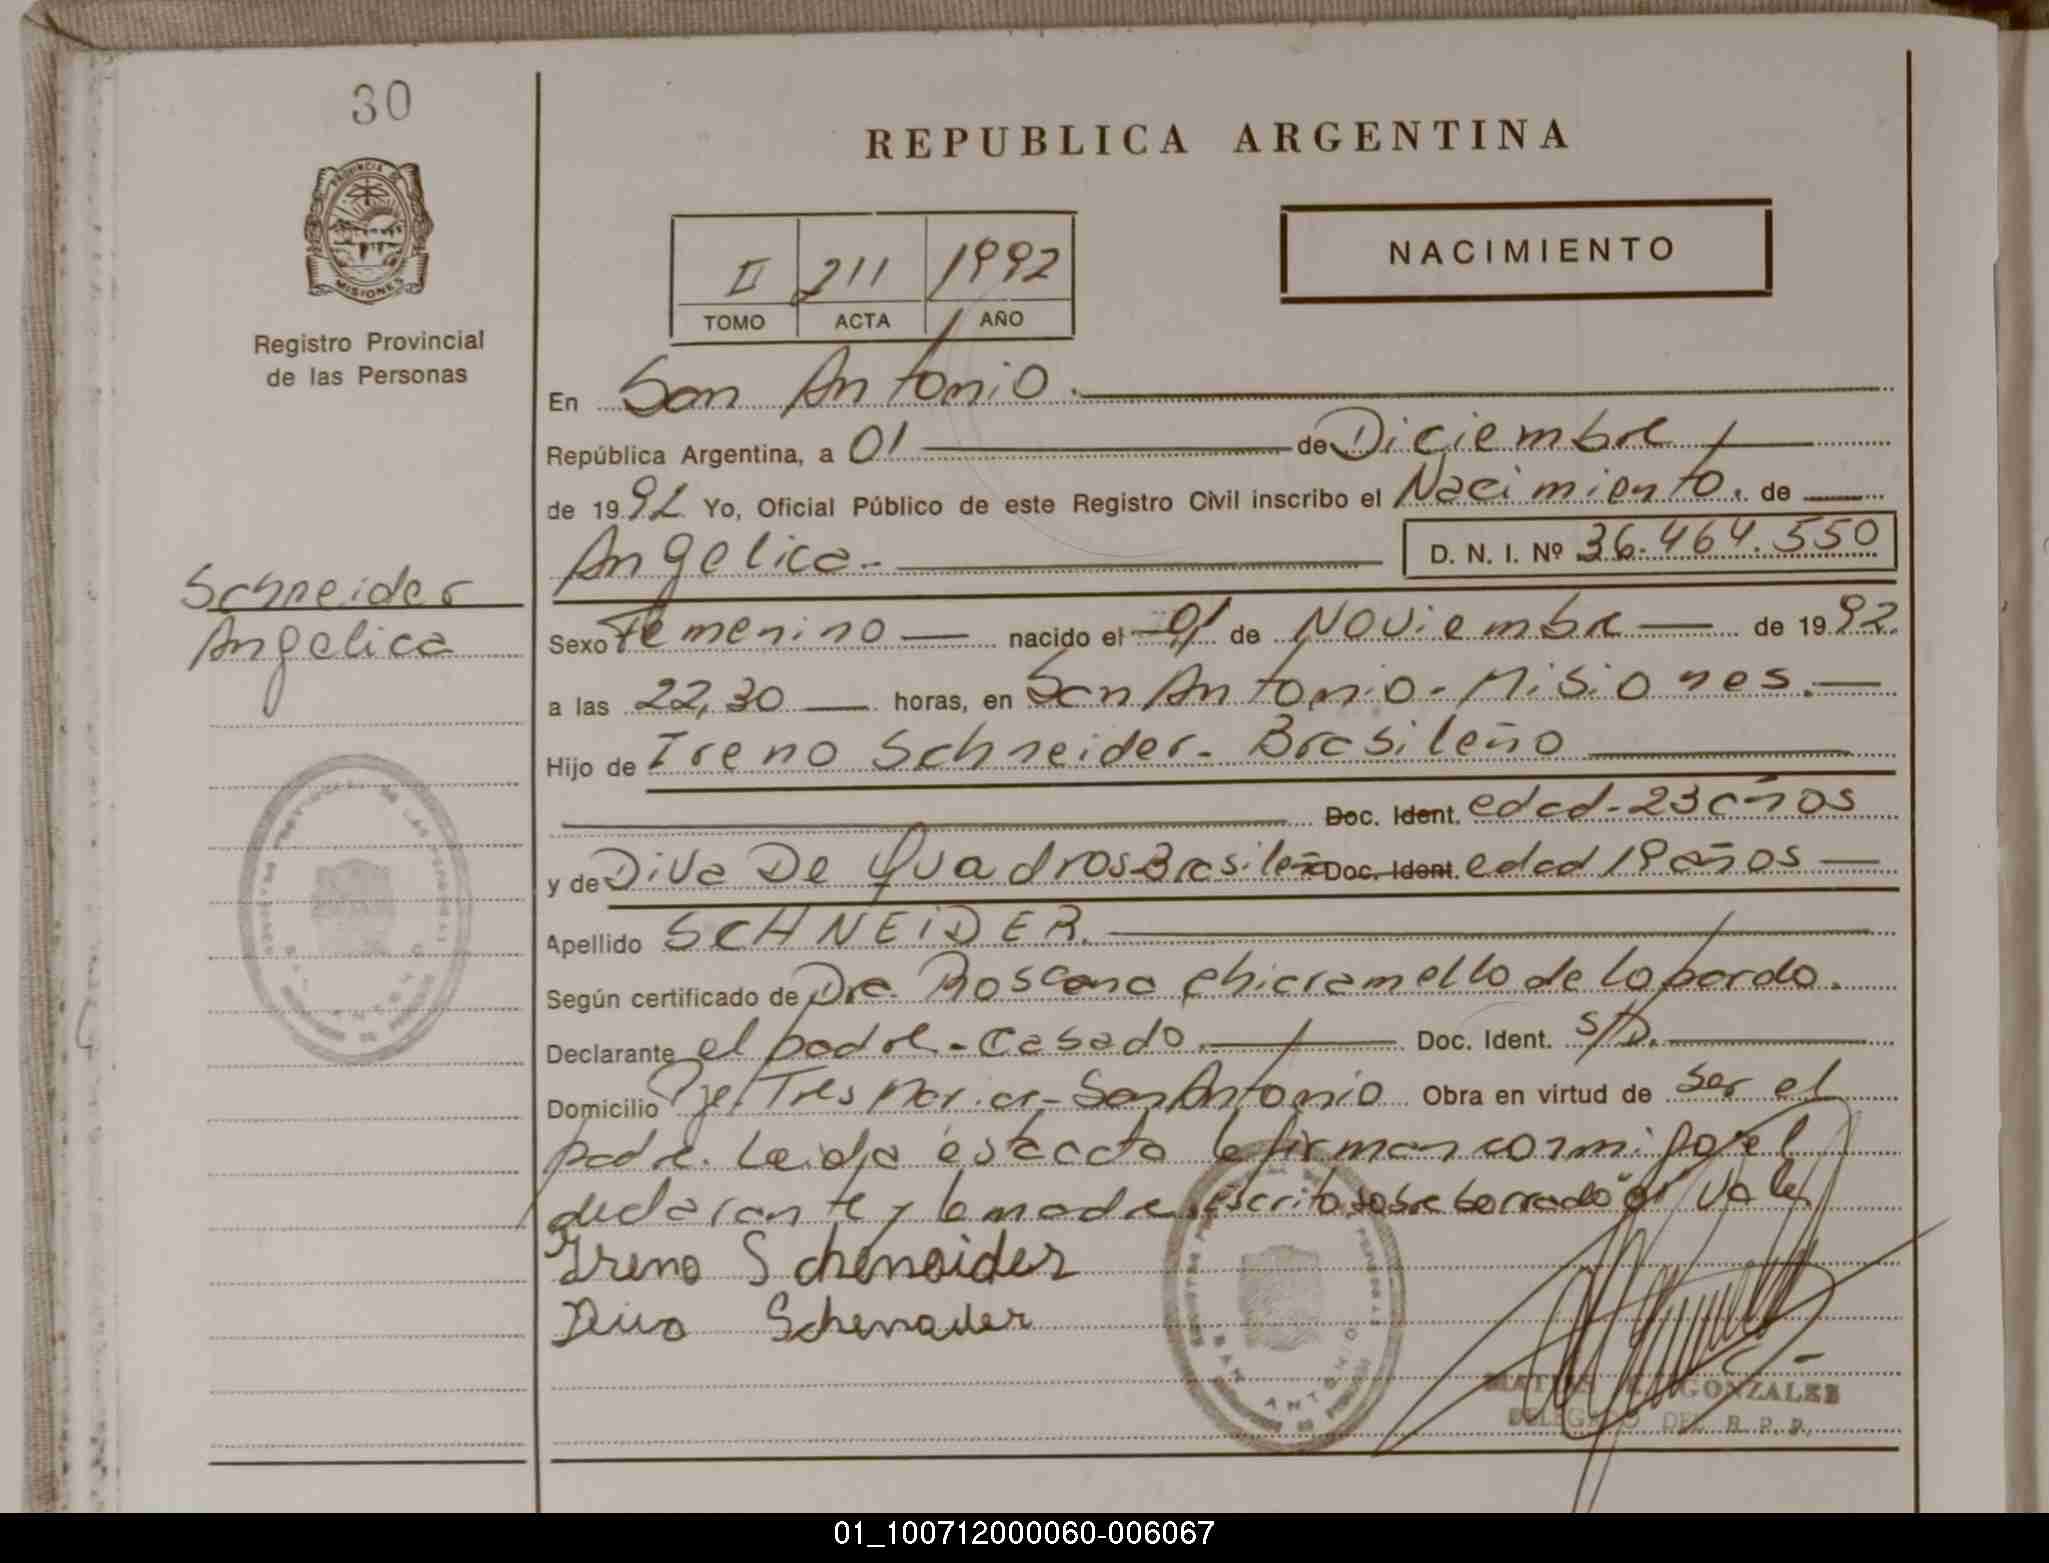 30
PROVINCIA DE
MISIONES
Registro Provincial
de las Personas
Schneider
Angelica
REPUBLICA ARGENTINA
NACIMIENTO
II 211 1992
TOMO ACTA AÑO
En San Antonio.
República Argentina, a 01 de Diciembre
de 1992 Yo, Oficial Público de este Registro Civil inscribo el Nacimiento. de
Angelica.- D. N. I. Nº 36.464.550
Sexo Femenino nacido el 01 de Noviembre de 1992.
a las 22,30 horas, en San Antonio - Misiones.
Hijo de Ireno Schneider - Brasileño
Doc. Ident. edad - 23 años
y de Diva De Quadros Brasileña Doc. Ident. edad 19 años
Apellido SCHNEIDER.
Según certificado de Dra. Roscana Chicramello de Lopardo.
Declarante el padre - casado. Doc. Ident. S/D.
Domicilio Pje. Tres Marias - San Antonio Obra en virtud de ser el
padre. Leida esta acta la firman conmigo el
declarante y la madre. escrito sobre borrado "01" Vale
Ireno Schenaider
Diva Schenaider
SAN ANTONIO
GONZALEZ
DELEGADO DEL R. P. P.
01_100712000060-006067